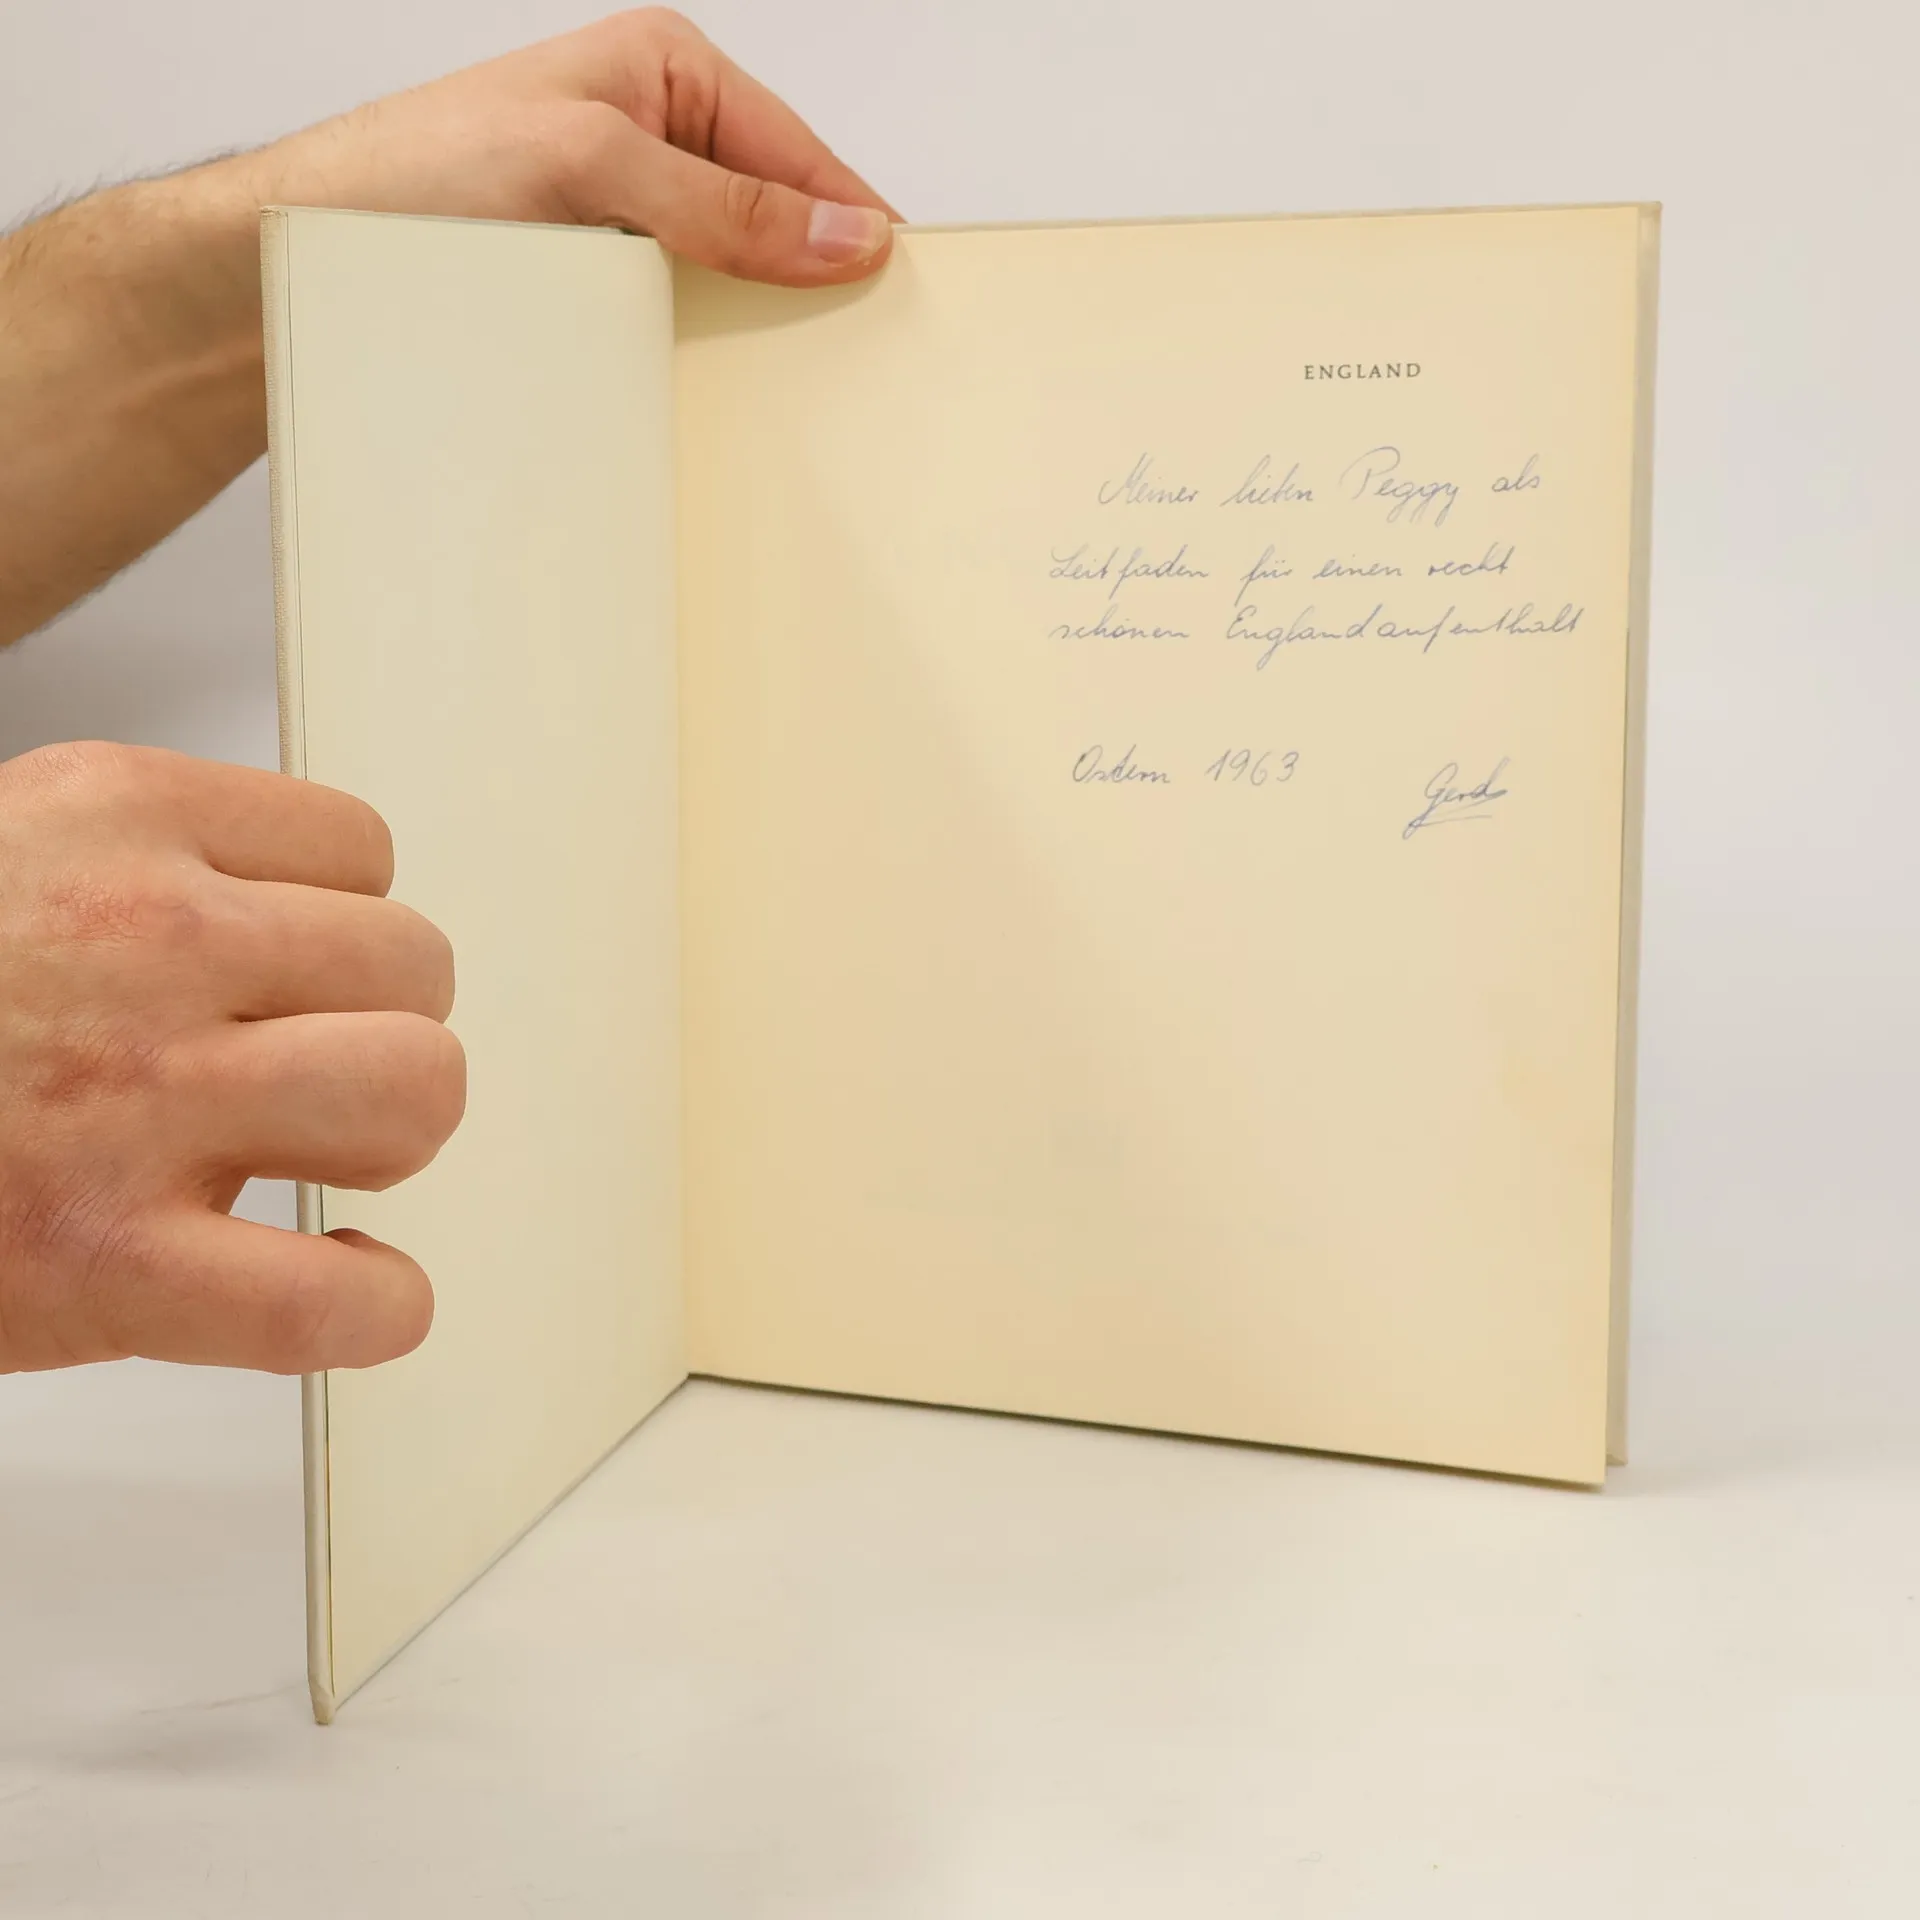 ENGLAND
Meiner lieben Peggy als
Leitfaden für einen recht
schönen Englandaufenthalt
Ostern 1963
Gerd